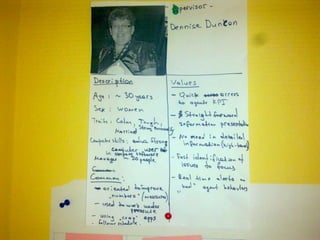 Supervisor -
Dennise Duncan
Description
Age: ~ 30 years
Sex: women
Traits: Calm, Tough,
Strong
Married
Computer skills:
computer user
in company software
Manager ~ 20 people
Common:
- oriented to improve
"numbers"/
- used to work under
pressure
- using "crag" apps
- follow schedule
Values
- Quick access to
agents KPI
- Straight forward
information presentation
- No need in detailed
information (high-level)
- Fast identification of
issues to focus
- Real time alerts on
"bad" agent behaviors